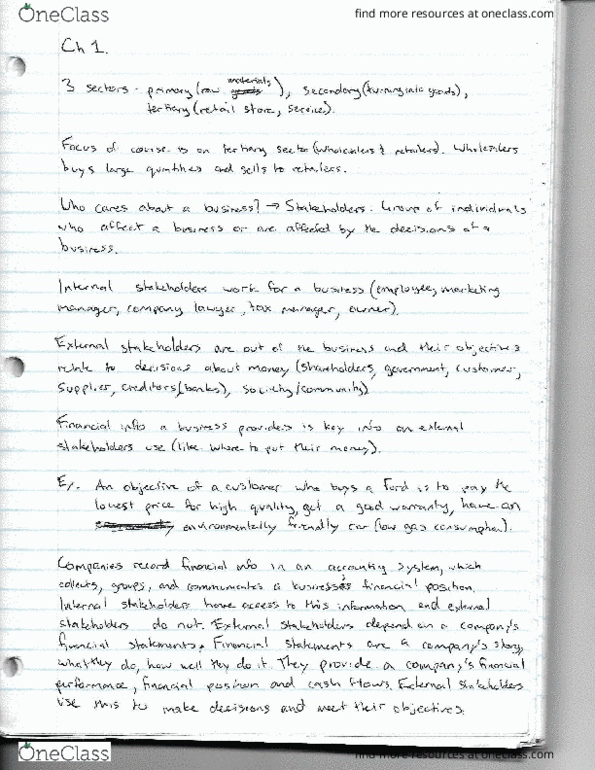 OneClass
find more resources at oneclass.com
Ch 1.
3 sectors - primary (raw materials), secondary (turning into goods),
tertiary (retail store, service).
Focus of course is on tertiary sector (wholesalers & retailers). Wholesalers
buys large quntities and sells to retailers.
Who cares about a business? → Stakeholders. Group of individuals
who affect a business or are affected by the decisions of a
business.
Internal stakeholders work for a business (employee, marketing
manager, company lawyer, tax manager, owner).
External stakeholders are out of the business and their objectives
relate to decisions about money (shareholders, government, customer,
supplier, creditors (banks), society/community)
Financial info a business provides is key info an external
stakeholders use (like where to put their money).
Ex. An objective of a customer who buys a Ford is to pay the
lowest price for high quality, get a good warranty, have an
environmentally friendly car (low gas consumption).
Companies record financial info in an accounting system, which
collects, groups, and communicates a business's financial position.
Internal stakeholders have access to this information and external
stakeholders do not. External stakeholders depend on a company's
financial statements. Financial statements are a company's story,
what they do, how well they do it. They provide a company's financial
performance, financial position and cash flows. External stakeholders
use this to make decisions and meet their objectives.
OneClass
find more resources at oneclass.com